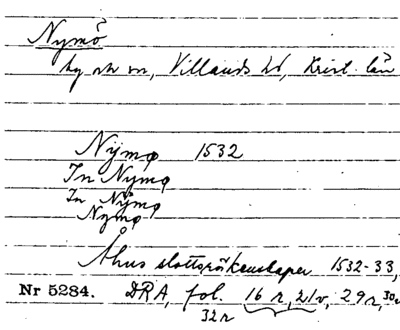 Nymö
by o sn, Villands hd, Krist. län
Nÿmø 1532
In Nymø
In Nÿmø
Nymø
Åhus slottsräkenskaper 1532-33,
Nr 5284. DRA, fol. 16 r, 21 v, 29 r, 30v
32 r